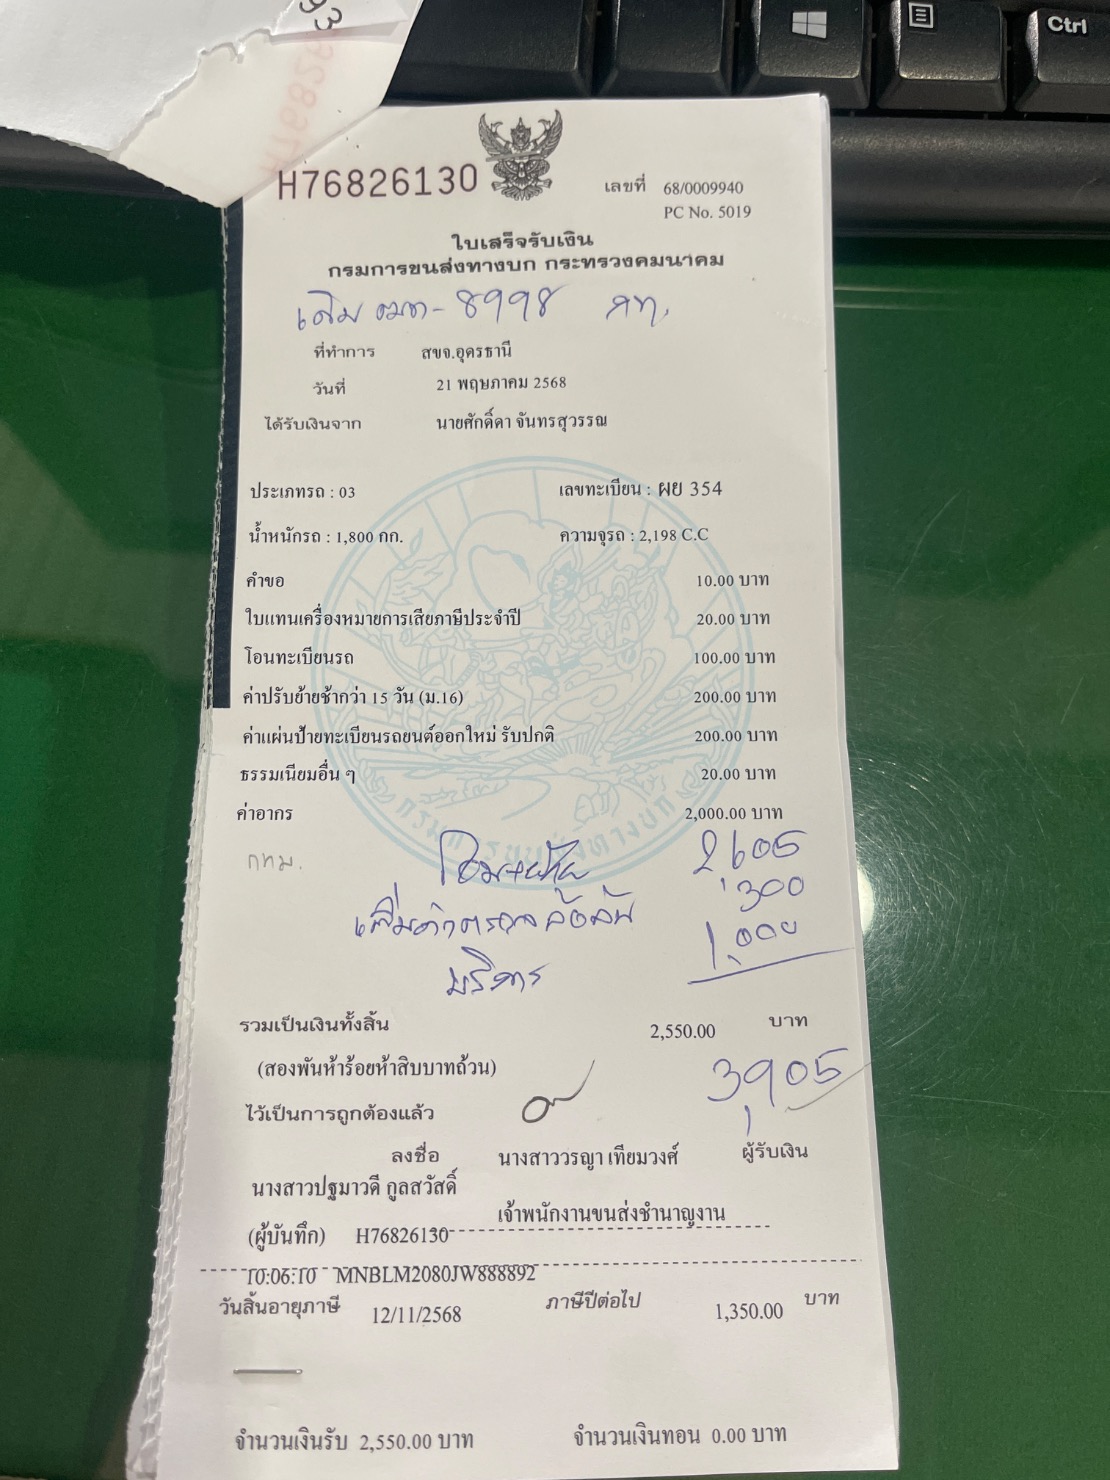 H76826130
เลขที่ 68/0009940
PC No. 5019
ใบเสร็จรับเงิน
กรมการขนส่งทางบก กระทรวงคมนาคม
เดิม 8998 กท.
ที่ทำการ สขจ.อุดรธานี
วันที่ 21 พฤษภาคม 2568
ได้รับเงินจาก นายศักดิ์ดา จันทรสุวรรณ
ประเภทรถ : 03 เลขทะเบียน : ผย 354
น้ำหนักรถ : 1,800 กก. ความจุรถ : 2,198 C.C
คำขอ 10.00 บาท
ใบแทนเครื่องหมายการเสียภาษีประจำปี 20.00 บาท
โอนทะเบียนรถ 100.00 บาท
ค่าปรับย้ายช้ากว่า 15 วัน (ม.16) 200.00 บาท
ค่าแผ่นป้ายทะเบียนรถยนต์ออกใหม่ รับปกติ 200.00 บาท
ธรรมเนียมอื่น ๆ 20.00 บาท
ค่าอากร 2,000.00 บาท
กรมการขนส่งทางบก
กทม. 2,605
300
บริการ 1,000
รวมเป็นเงินทั้งสิ้น 2,550.00 บาท
(สองพันห้าร้อยห้าสิบบาทถ้วน) 3,905
ไว้เป็นการถูกต้องแล้ว
ลงชื่อ นางสาววรญา เทียมวงศ์ ผู้รับเงิน
นางสาวปฐมาวดี กูลสวัสดิ์
เจ้าพนักงานขนส่งชำนาญงาน
(ผู้บันทึก) H76826130
10:06:10 MNBLM2080JW888892
วันสิ้นอายุภาษี 12/11/2568 ภาษีปีต่อไป 1,350.00 บาท
จำนวนเงินรับ 2,550.00 บาท จำนวนเงินทอน 0.00 บาท
Ctrl